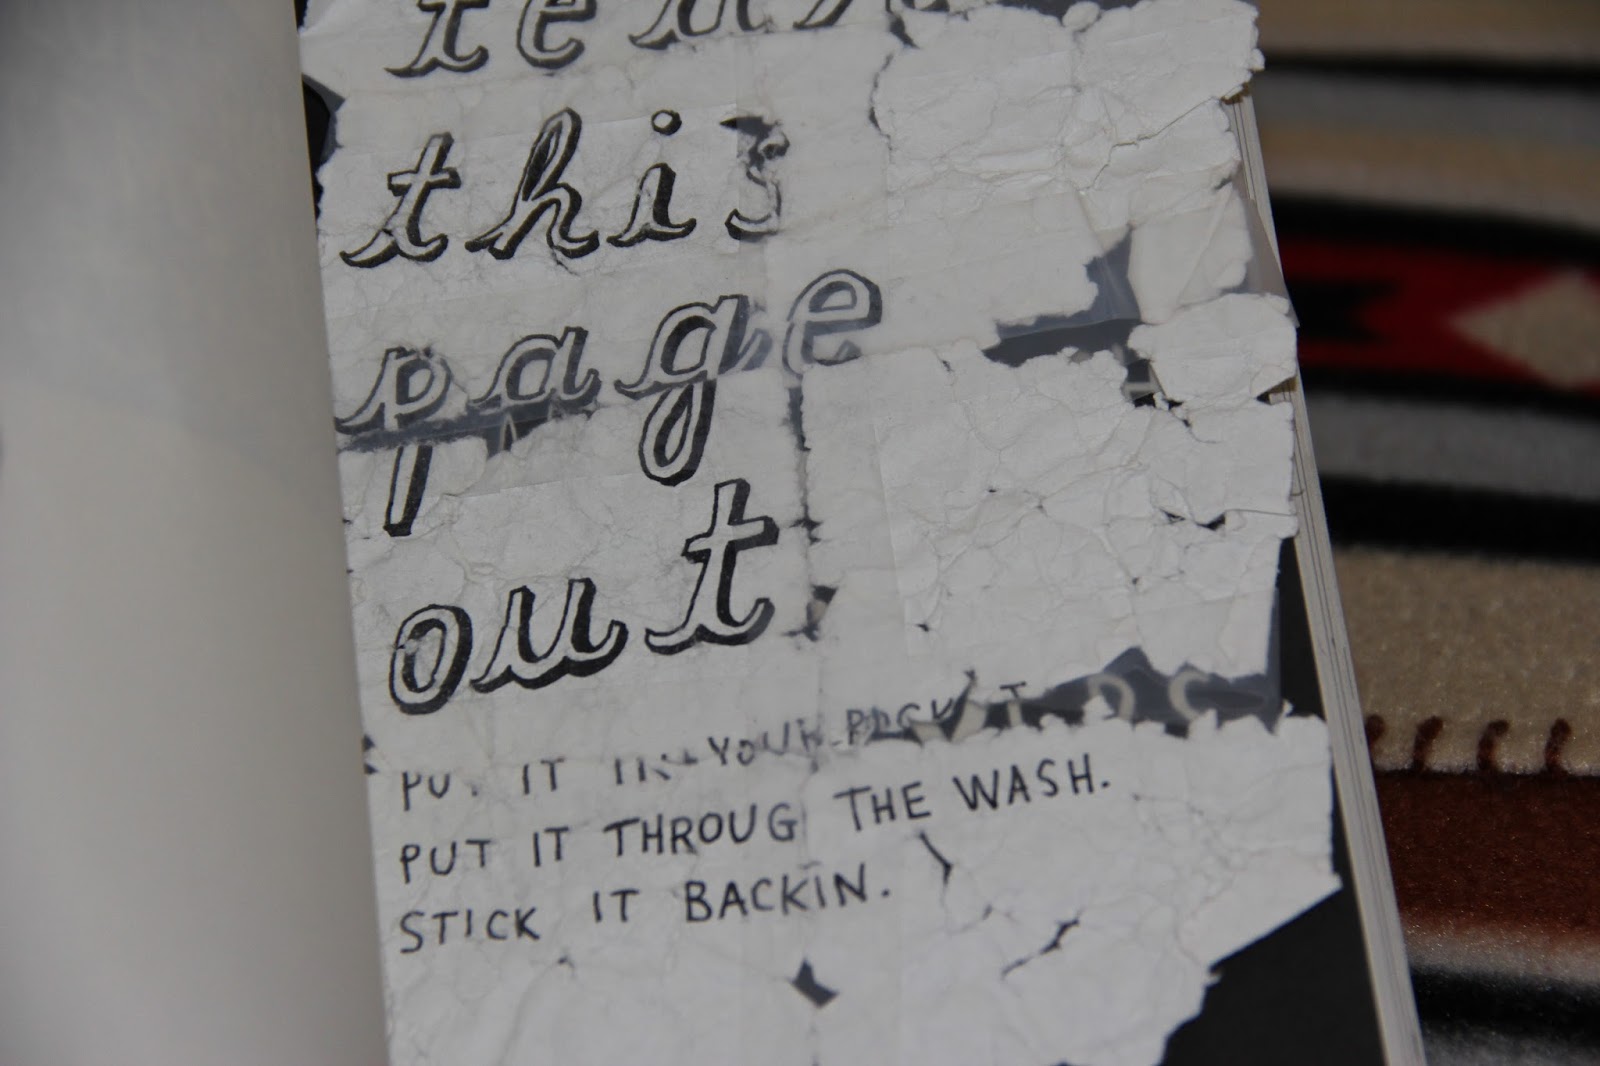 tear
this
page
out
PUT IT IN YOUR POCKET
PUT IT THROUG THE WASH.
STICK IT BACKIN.